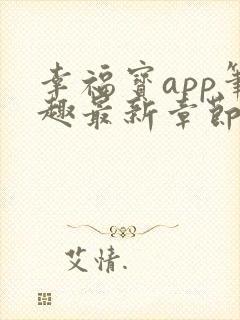 幸福宝app笔
趣最新章节
艾情.